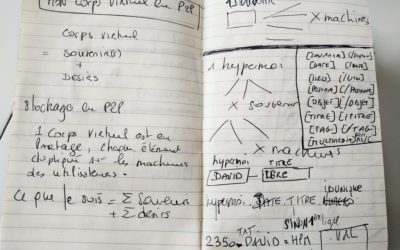 MON CORPS VIRTUEL EN P2P
CORPS
VIRTUEL
= SOUVENIR(S)
+
DÉSIRS
Stockage en P2P
1 corps virtuel est en
partage, chaque élément
dupliqué sur les machines
des utilisateurs.
Ce que je suis = Σ Saveurs
+ Σ désirs
X machines
1 hypermoi
X souvenir
X machines
[DATE] [/DATE]
[LIEU] [/LIEU]
[OBJET] [/OBJET]
[TITRE] [/TITRE]
[TAG] [/TAG]
hypermoi TITRE
DAVID
hypermoi. DATE. TITRE.
SINON
2350 DAVID a HPM URL